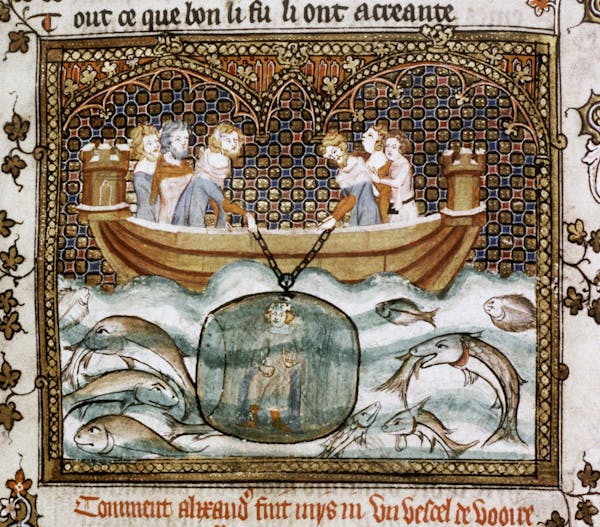 Tout ce que bon li fu li ont acreante
Comment alixandʳ fuit mys in vn vescel de vooire